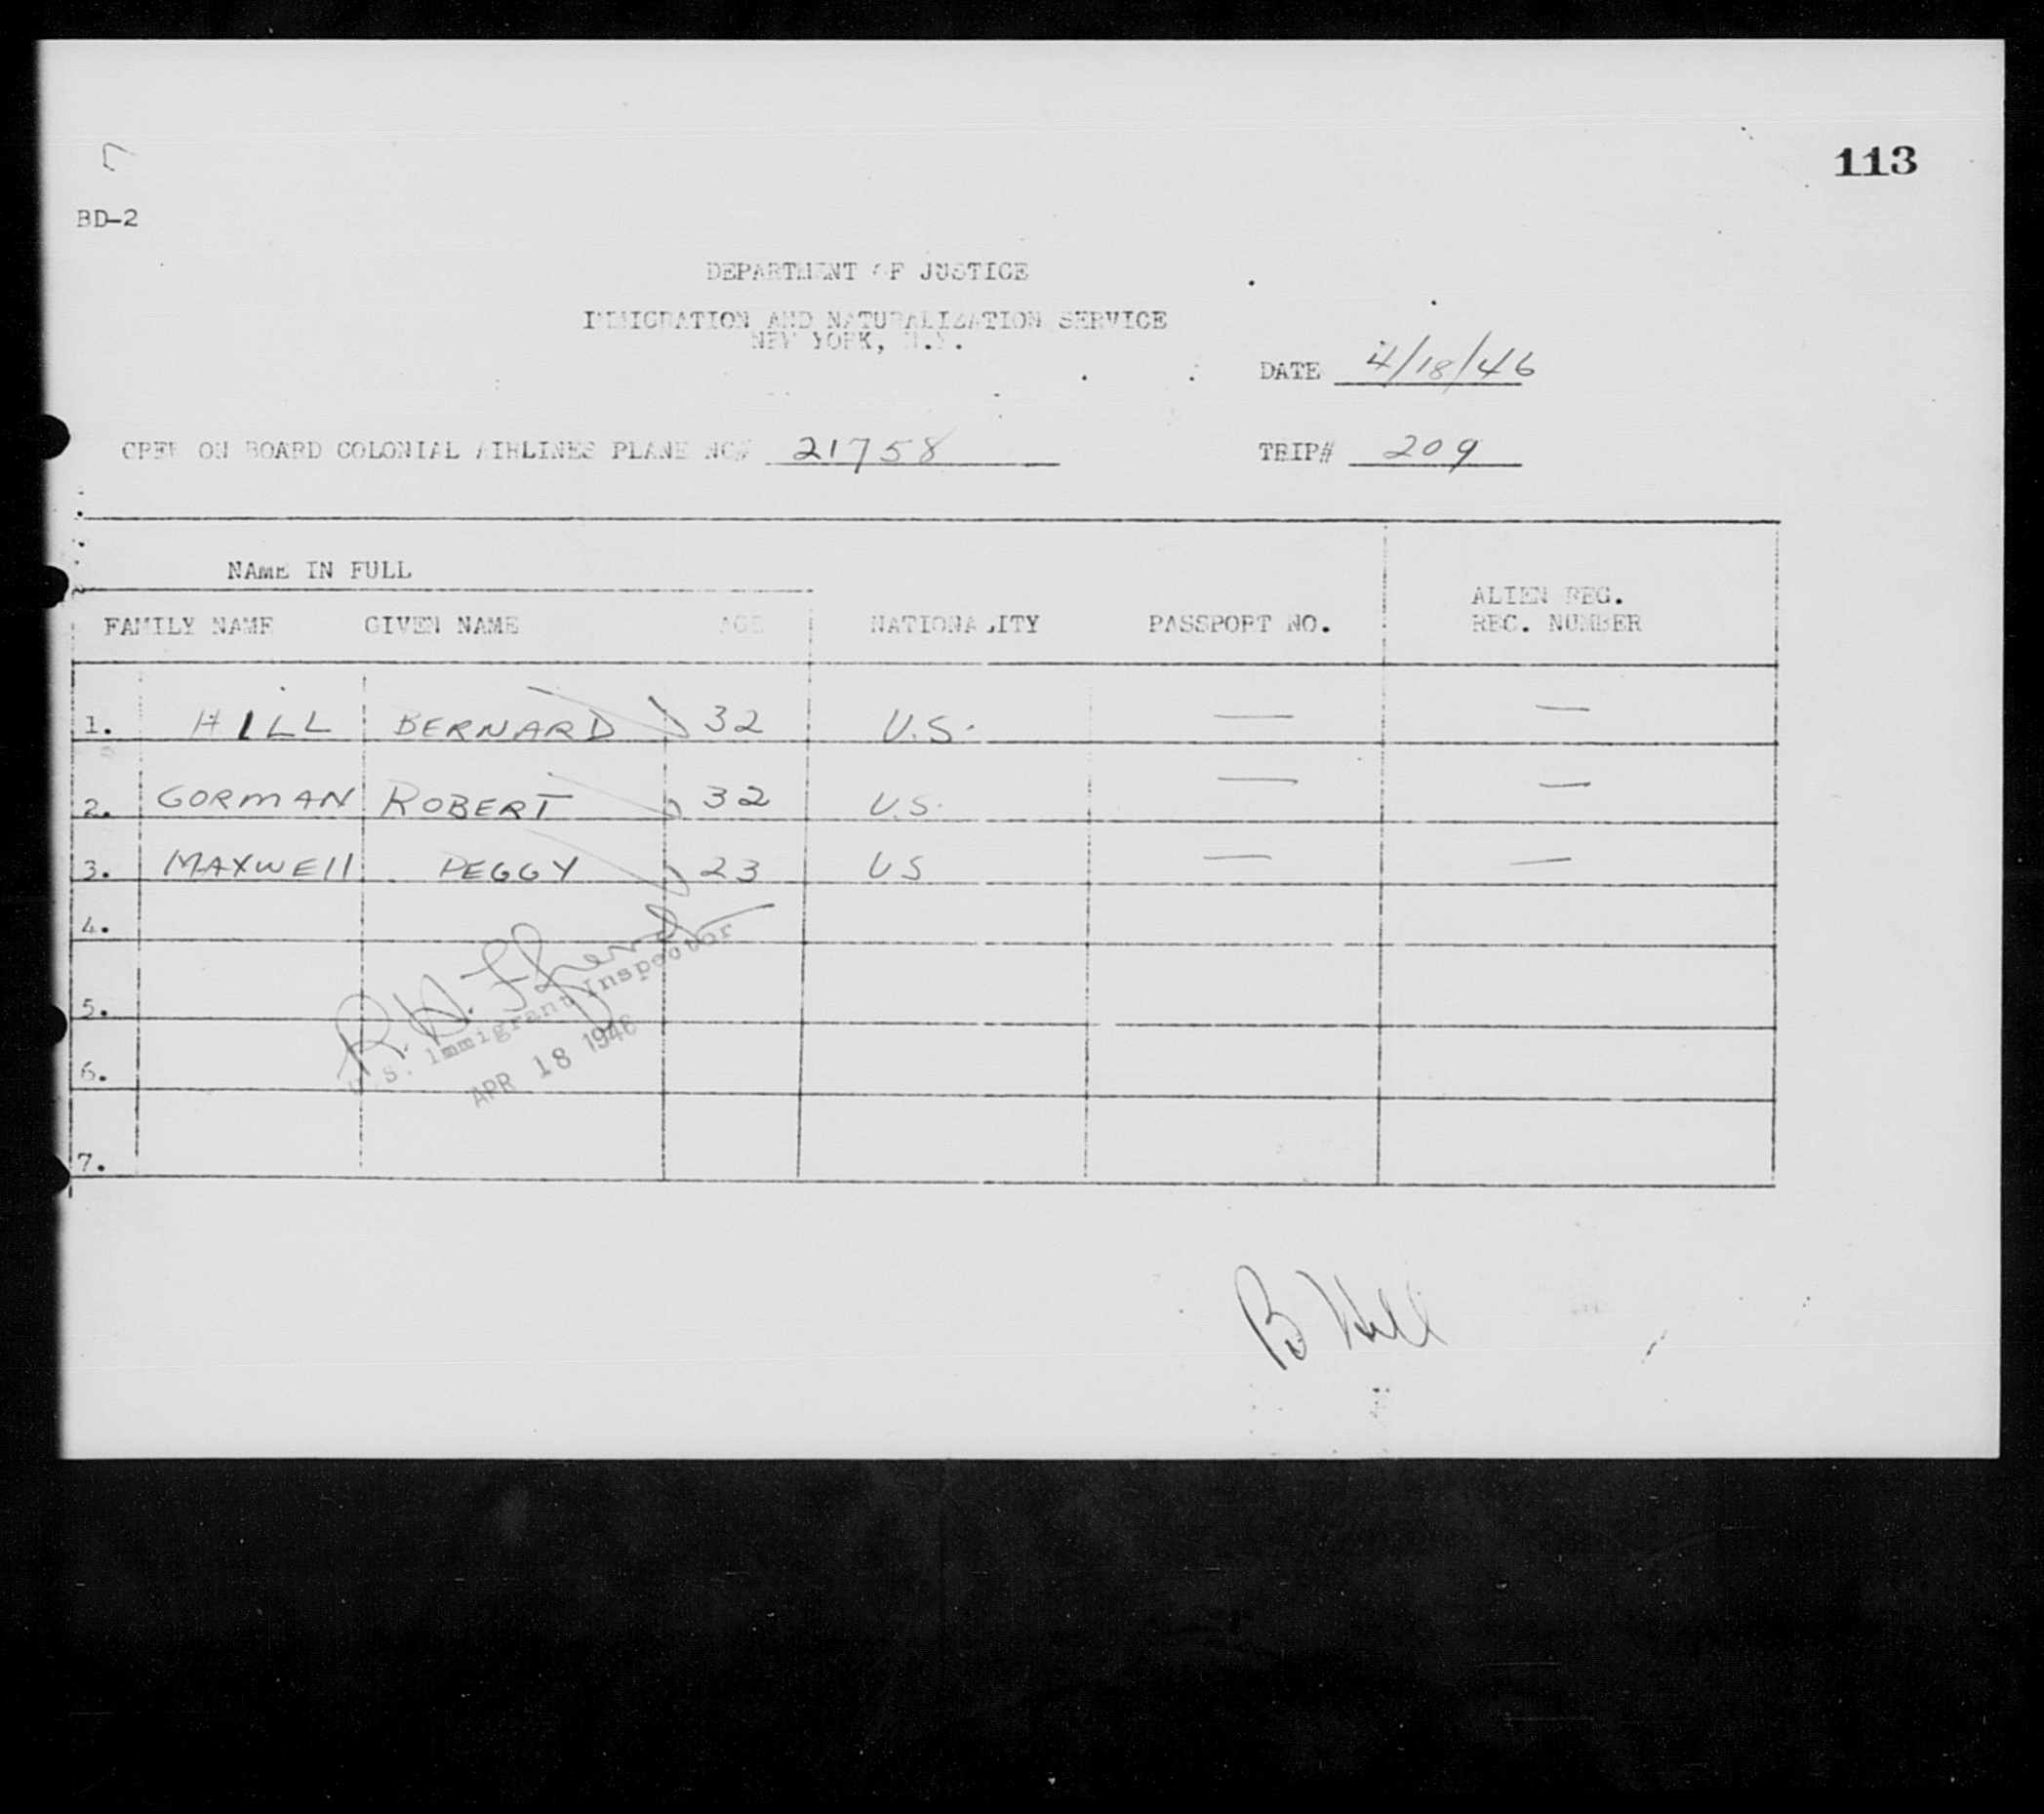 113
BD-2
DEPARTMENT OF JUSTICE
IMMIGRATION AND NATURALIZATION SERVICE
NEW YORK, N.Y.
DATE 4/18/46
CREW ON BOARD COLONIAL AIRLINES PLANE NO# 21758 TRIP# 209
NAME IN FULL
FAMILY NAME GIVEN NAME AGE NATIONALITY PASSPORT NO. ALIEN REG.
REC. NUMBER
1. HILL BERNARD 32 U.S. — —
2. GORMAN ROBERT 32 U.S. — —
3. MAXWEll PEGGY 23 US — —
4.
5.
6.
7.
R.H.
U.S. Immigrant Inspector
APR 18 1946
B Hill